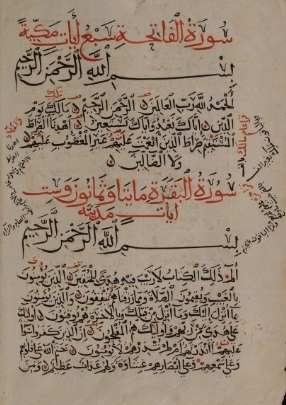 سورة الفاتحة سبع آيات مكية
بسم الله الرحمن الرحيم
الحمد لله رب العالمين الرحمن الرحيم مالك يوم
الدين إياك نعبد وإياك نستعين اهدنا الصراط
المستقيم صراط الذين أنعمت عليهم غير المغضوب عليهم
ولا الضالين
سورة البقرة مايتان وثمانون وست
آيات مدنية
بسم الله الرحمن الرحيم
الم ذلك الكتاب لا ريب فيه هدى للمتقين الذين يؤمنون
بالغيب ويقيمون الصلاة ومما رزقناهم ينفقون والذين يؤمنون
بما أنزل إليك وما أنزل من قبلك وبالآخرة هم يوقنون أولئك
على هدى من ربهم وأولئك هم المفلحون إن الذين كفروا سواء
عليهم أأنذرتهم أم لم تنذرهم لا يؤمنون ختم الله على قلوبهم
وعلى سمعهم وعلى أبصارهم غشاوة ولهم عذاب عظيم ومن